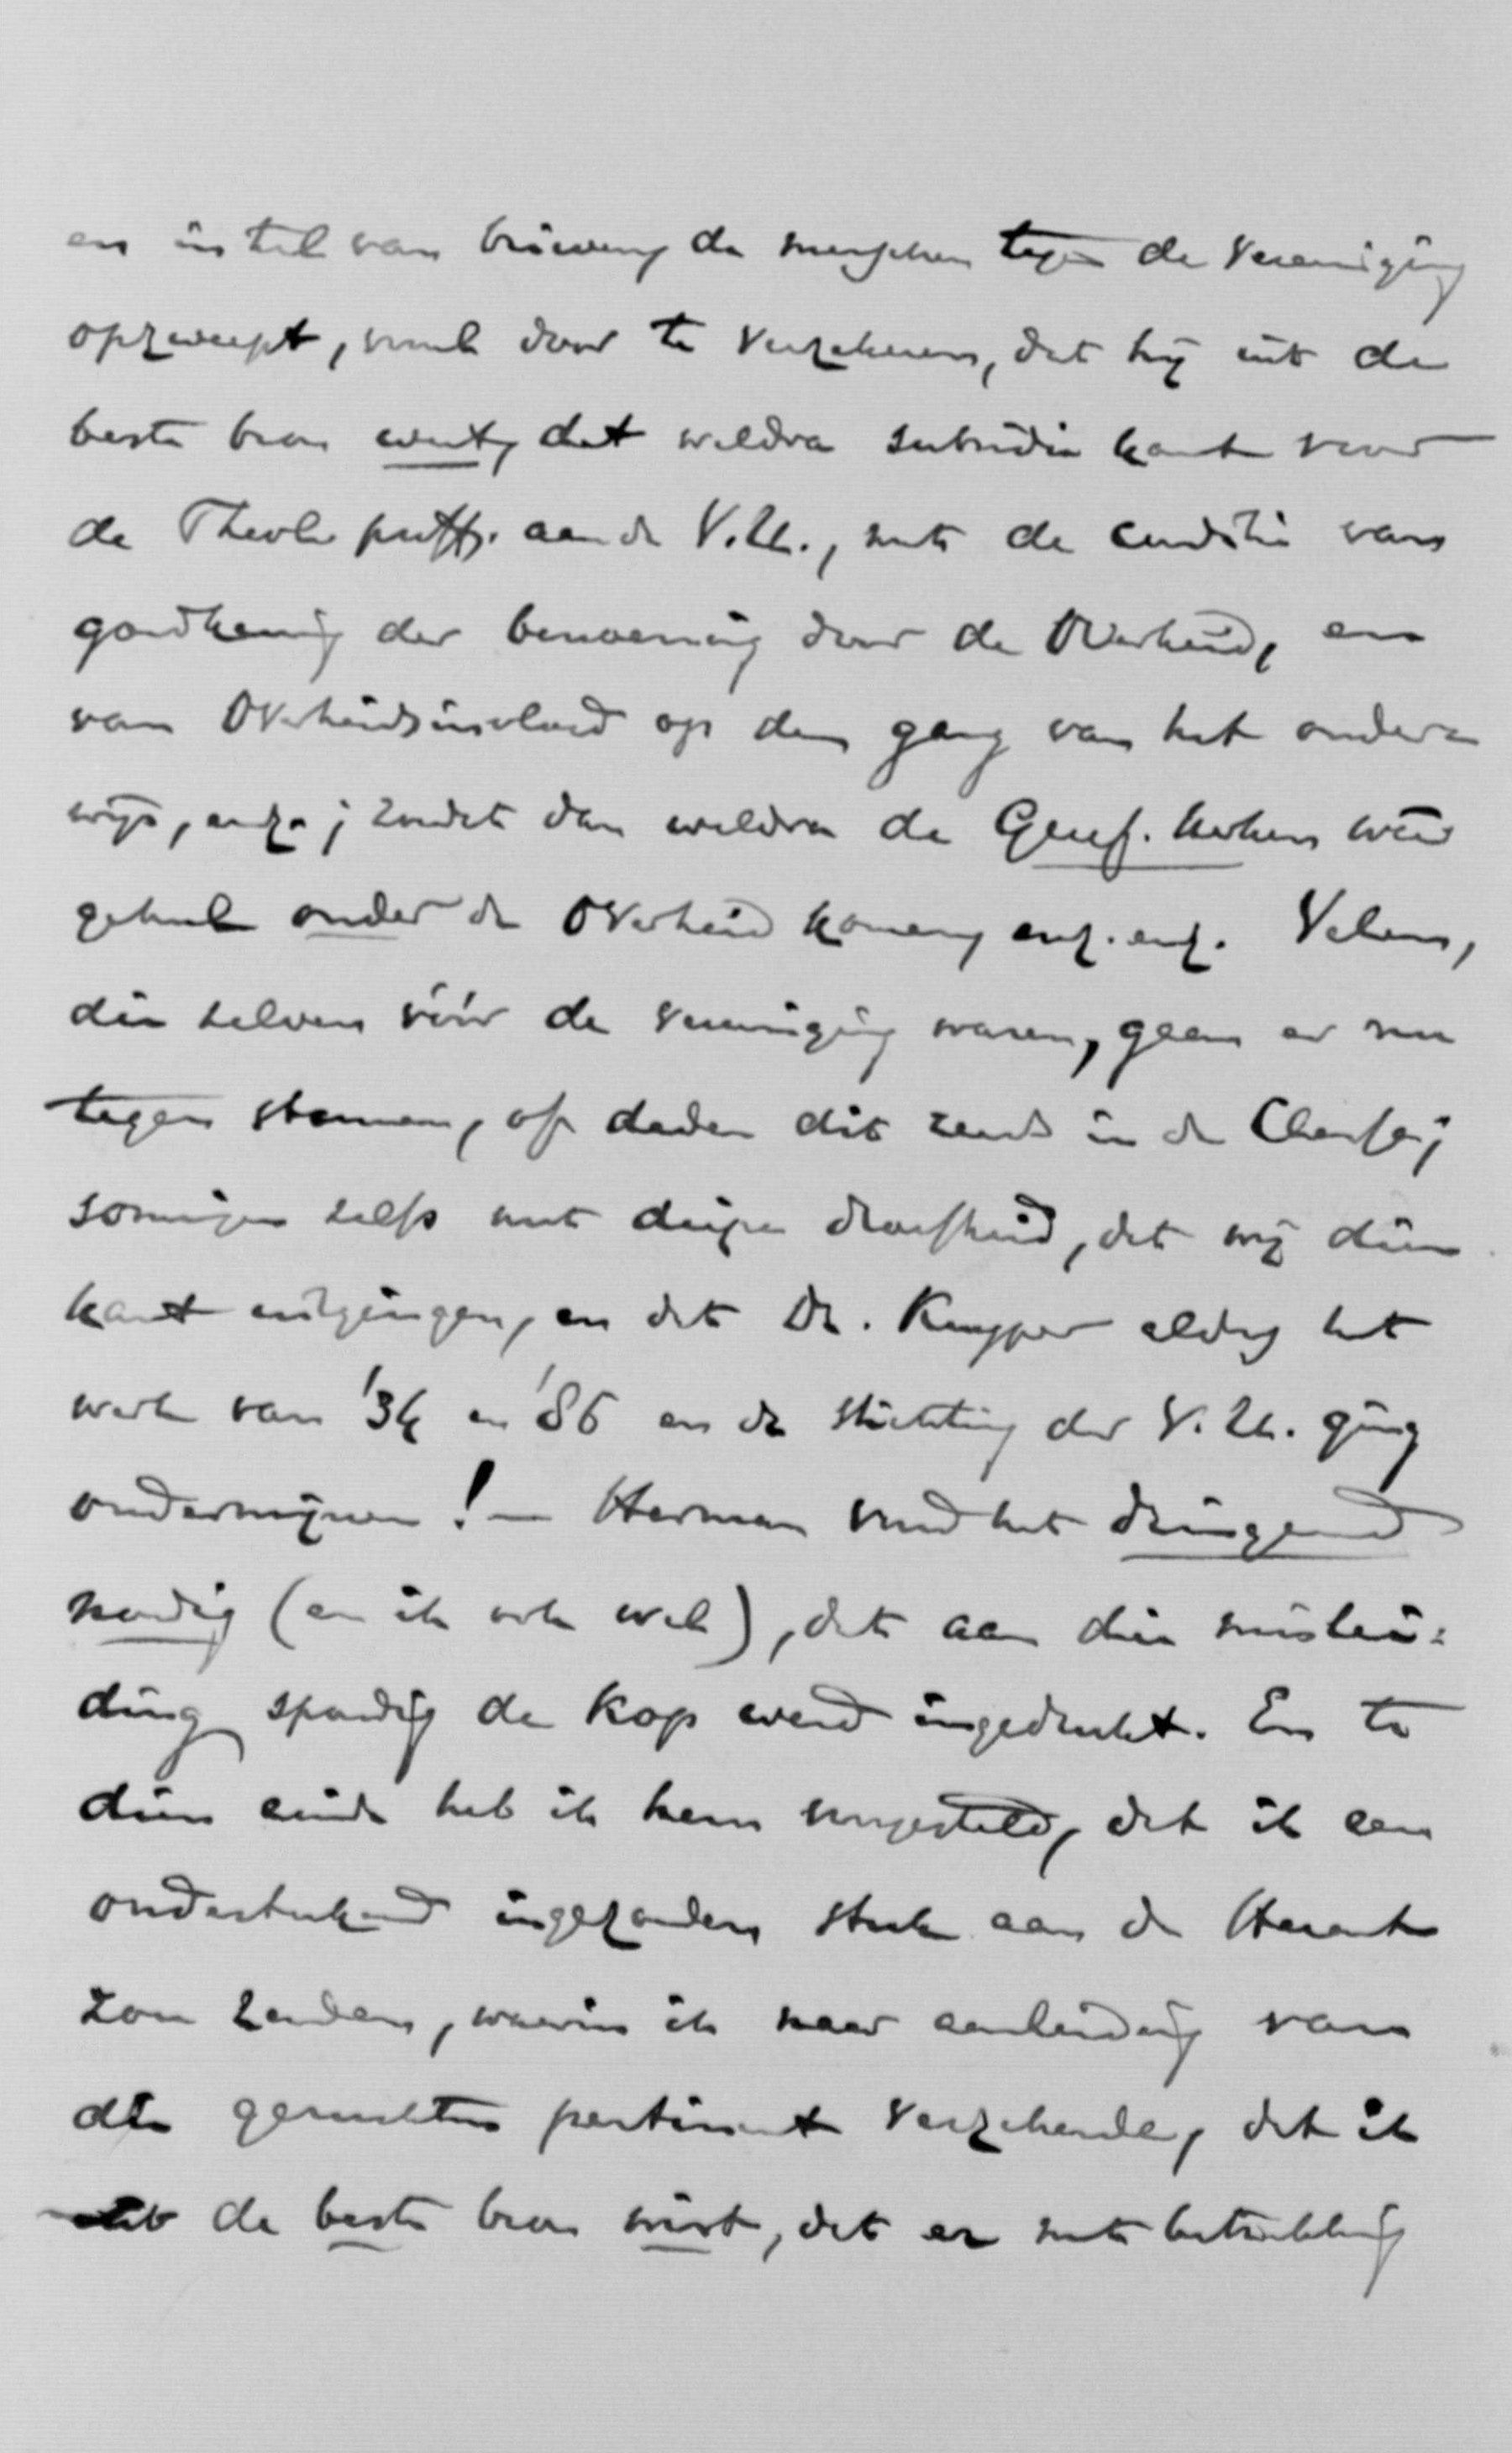 en in tal van brieven de menschen tegen de Vereeniging
opzweept, vooral door te verzekeren, dat hij uit de
beste bron weet, dat weldra subsidie komt voor
de Theol. proff. aan de V.U., met de conditie van
goedkeuring der benoeming door de Overheid, en
van Overheidsinvloed op den gang van het onder=
wijs, enz.; zoodat dan weldra de Geref. Kerken weer
geheel onder de Overheid komen, enz. enz. Velen,
die zelven vóór de vereeniging waren, gaan er nu
tegen stemmen, of deden dit reeds in de Classe;
sommigen zelfs met diepe droefheid, dat wij dien
kant uitgingen, en dat Dr. Kuyper aldus het
werk van '34 en '86 en de stichting der V.U. ging
ondermijnen! — Herman vond het dringend
noodig (en ik ook wel), dat aan die mislei=
ding spoedig de kop werd ingedrukt. En te
dien einde heb ik hem voorgesteld, dat ik een
onderteekend ingezonden stuk aan de Heraut
zou zenden, waarin ik naar aanleiding van
die geruchten pertinent verzekerde, dat ik
uit de beste bron wist, dat er met betrekking